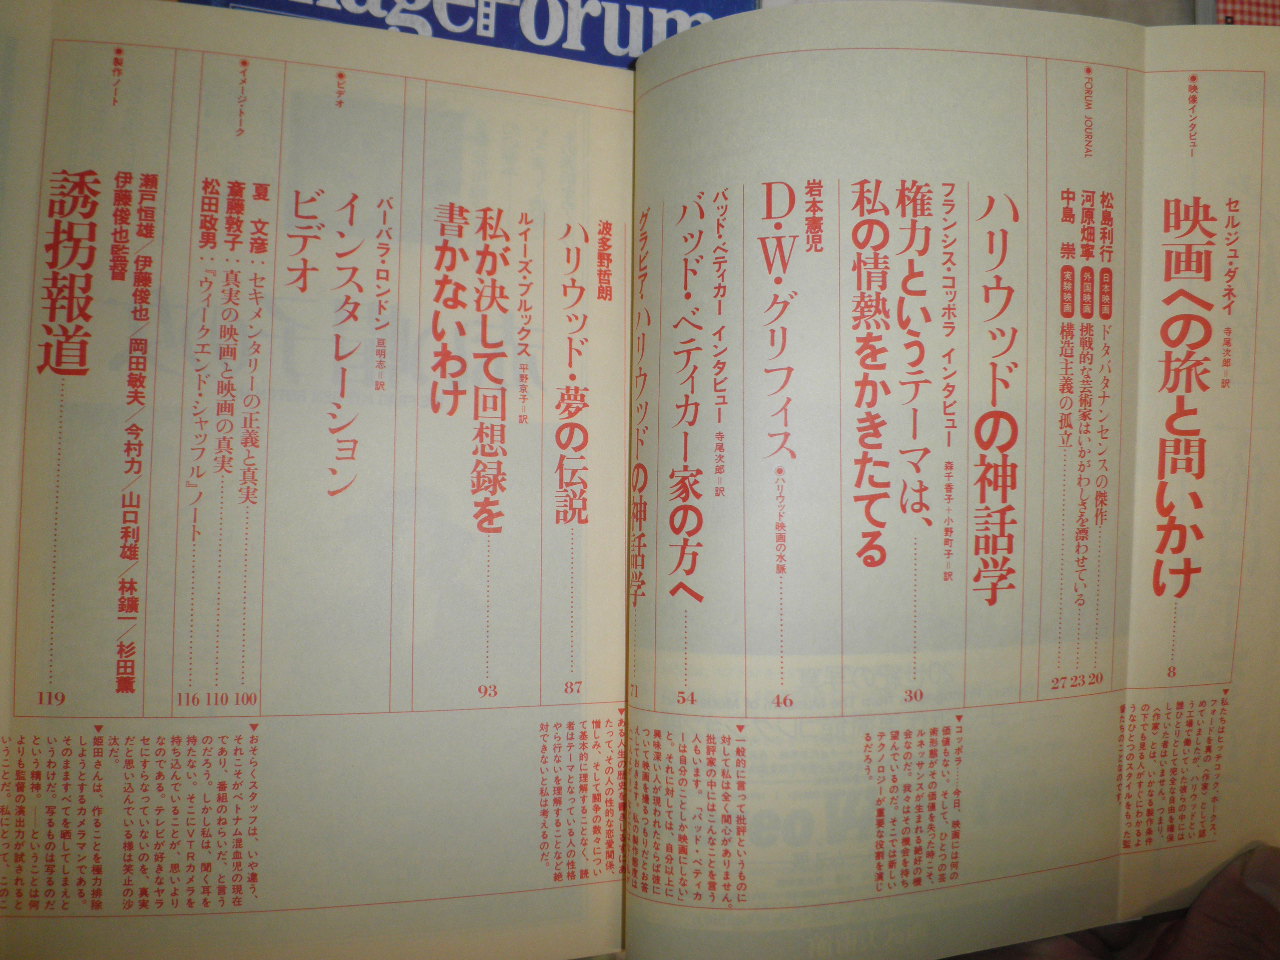 ImageForum
●映像インタビュー
セルジュ・ダネイ 寺尾次郎=訳
映画への旅と問いかけ 8
●FORUM JOURNAL
松島利行 日本映画 ドタバタナンセンスの傑作 20
河原畑寧 外国映画 挑戦的な芸術家はいかがわしさを漂わせている 23
中島 崇 実験映画 構造主義の孤立 27
ハリウッドの神話学
フランシス・コッポラ インタビュー 森千香子+小野町子=訳
権力というテーマは、
私の情熱をかきたてる 30
岩本憲児
D・W・グリフィス ●ハリウッド映画の水脈 46
バッド・ベティカー インタビュー 寺尾次郎=訳
バッド・ベティカー家の方へ 54
グラビア・ハリウッドの神話学 71
波多野哲朗
ハリウッド・夢の伝説 87
ルイーズ・ブルックス 平野京子=訳
私が決して回想録を
書かないわけ 93
●ビデオ
バーバラ・ロンドン 亘明志=訳
インスタレーション
ビデオ
●イメージ・トーク
夏 文彦:セキメンタリーの正義と真実 100
斎藤敦子:真実の映画と映画の真実 110
松田政男:『ウィークエンド・シャッフル』ノート 116
●製作ノート
瀬戸恒雄/伊藤俊也/岡田敏夫/今村力/山口利雄/林鑛一/杉田薫
伊藤俊也監督
誘拐報道 119
▼私たちはヒッチコック、ホークス、
フォードを真の〈作家〉として認
めていましたが、ハリウッドとい
う工場で働いていた彼らの中には
誰ひとりとして完全な自由を確保
していた者はいません。つまり、
〈作家〉とは、いかなる製作条件
の下でも見る人がすぐにわかるよ
うなひとつのスタイルをもった監
督たちのことなのです。
▼コッポラ……今日、映画には何の
価値もない。そして、ひとつの芸
術形態がその価値を失った時こそ、
ルネッサンスが生まれる絶好の機
会なのだ。我々はその機会を待ち
望んでいるのだ。そこでは新しい
テクノロジーが重要な役割を演じ
るだろう。
▼一般的に言って批評というものに
対して私は全く関心がありません。
批評家の中にはこんなことを言う
人もいます。「バッド・ベティカ
ーは自分のことしか映画にしない」
と。それに対しては、自分以上に
興味深い人が現われたならば彼に
ついて映画を撮るつもりだとお答
えしておきます。私の製作態度は
▼ある人生の歴史を書きしるすにあ
たって、その人の性的な恋愛関係、
憎しみ、そして闘争の数々につい
て基本的に理解することなく、読
者はテーマとなっている人の性格
やら行ないを理解することなど絶
対できないと私は考えるのだ。
▼おそらくスタッフは、いや違う、
それこそがベトナム混血児の現在
であり、番組のねらいだ、と言う
のだろう。しかし私は、聞く耳を
持たない。そこにVTRカメラを
持ち込んでいることが、思いより
なのである。テレビが好きなヤラ
セにすらなっていないのを、真実
だと思い込んでいる様は笑止の沙
汰だ。
▼姫田さんは、作ることを極力排除
しようとするカメラマンである。
そのまますべてを晒してしまえと
いうわけだ。写るものは写るのだ
という精神。——ということは何
よりも監督の演出力が試されると
いうことだ。私にとって、このこ